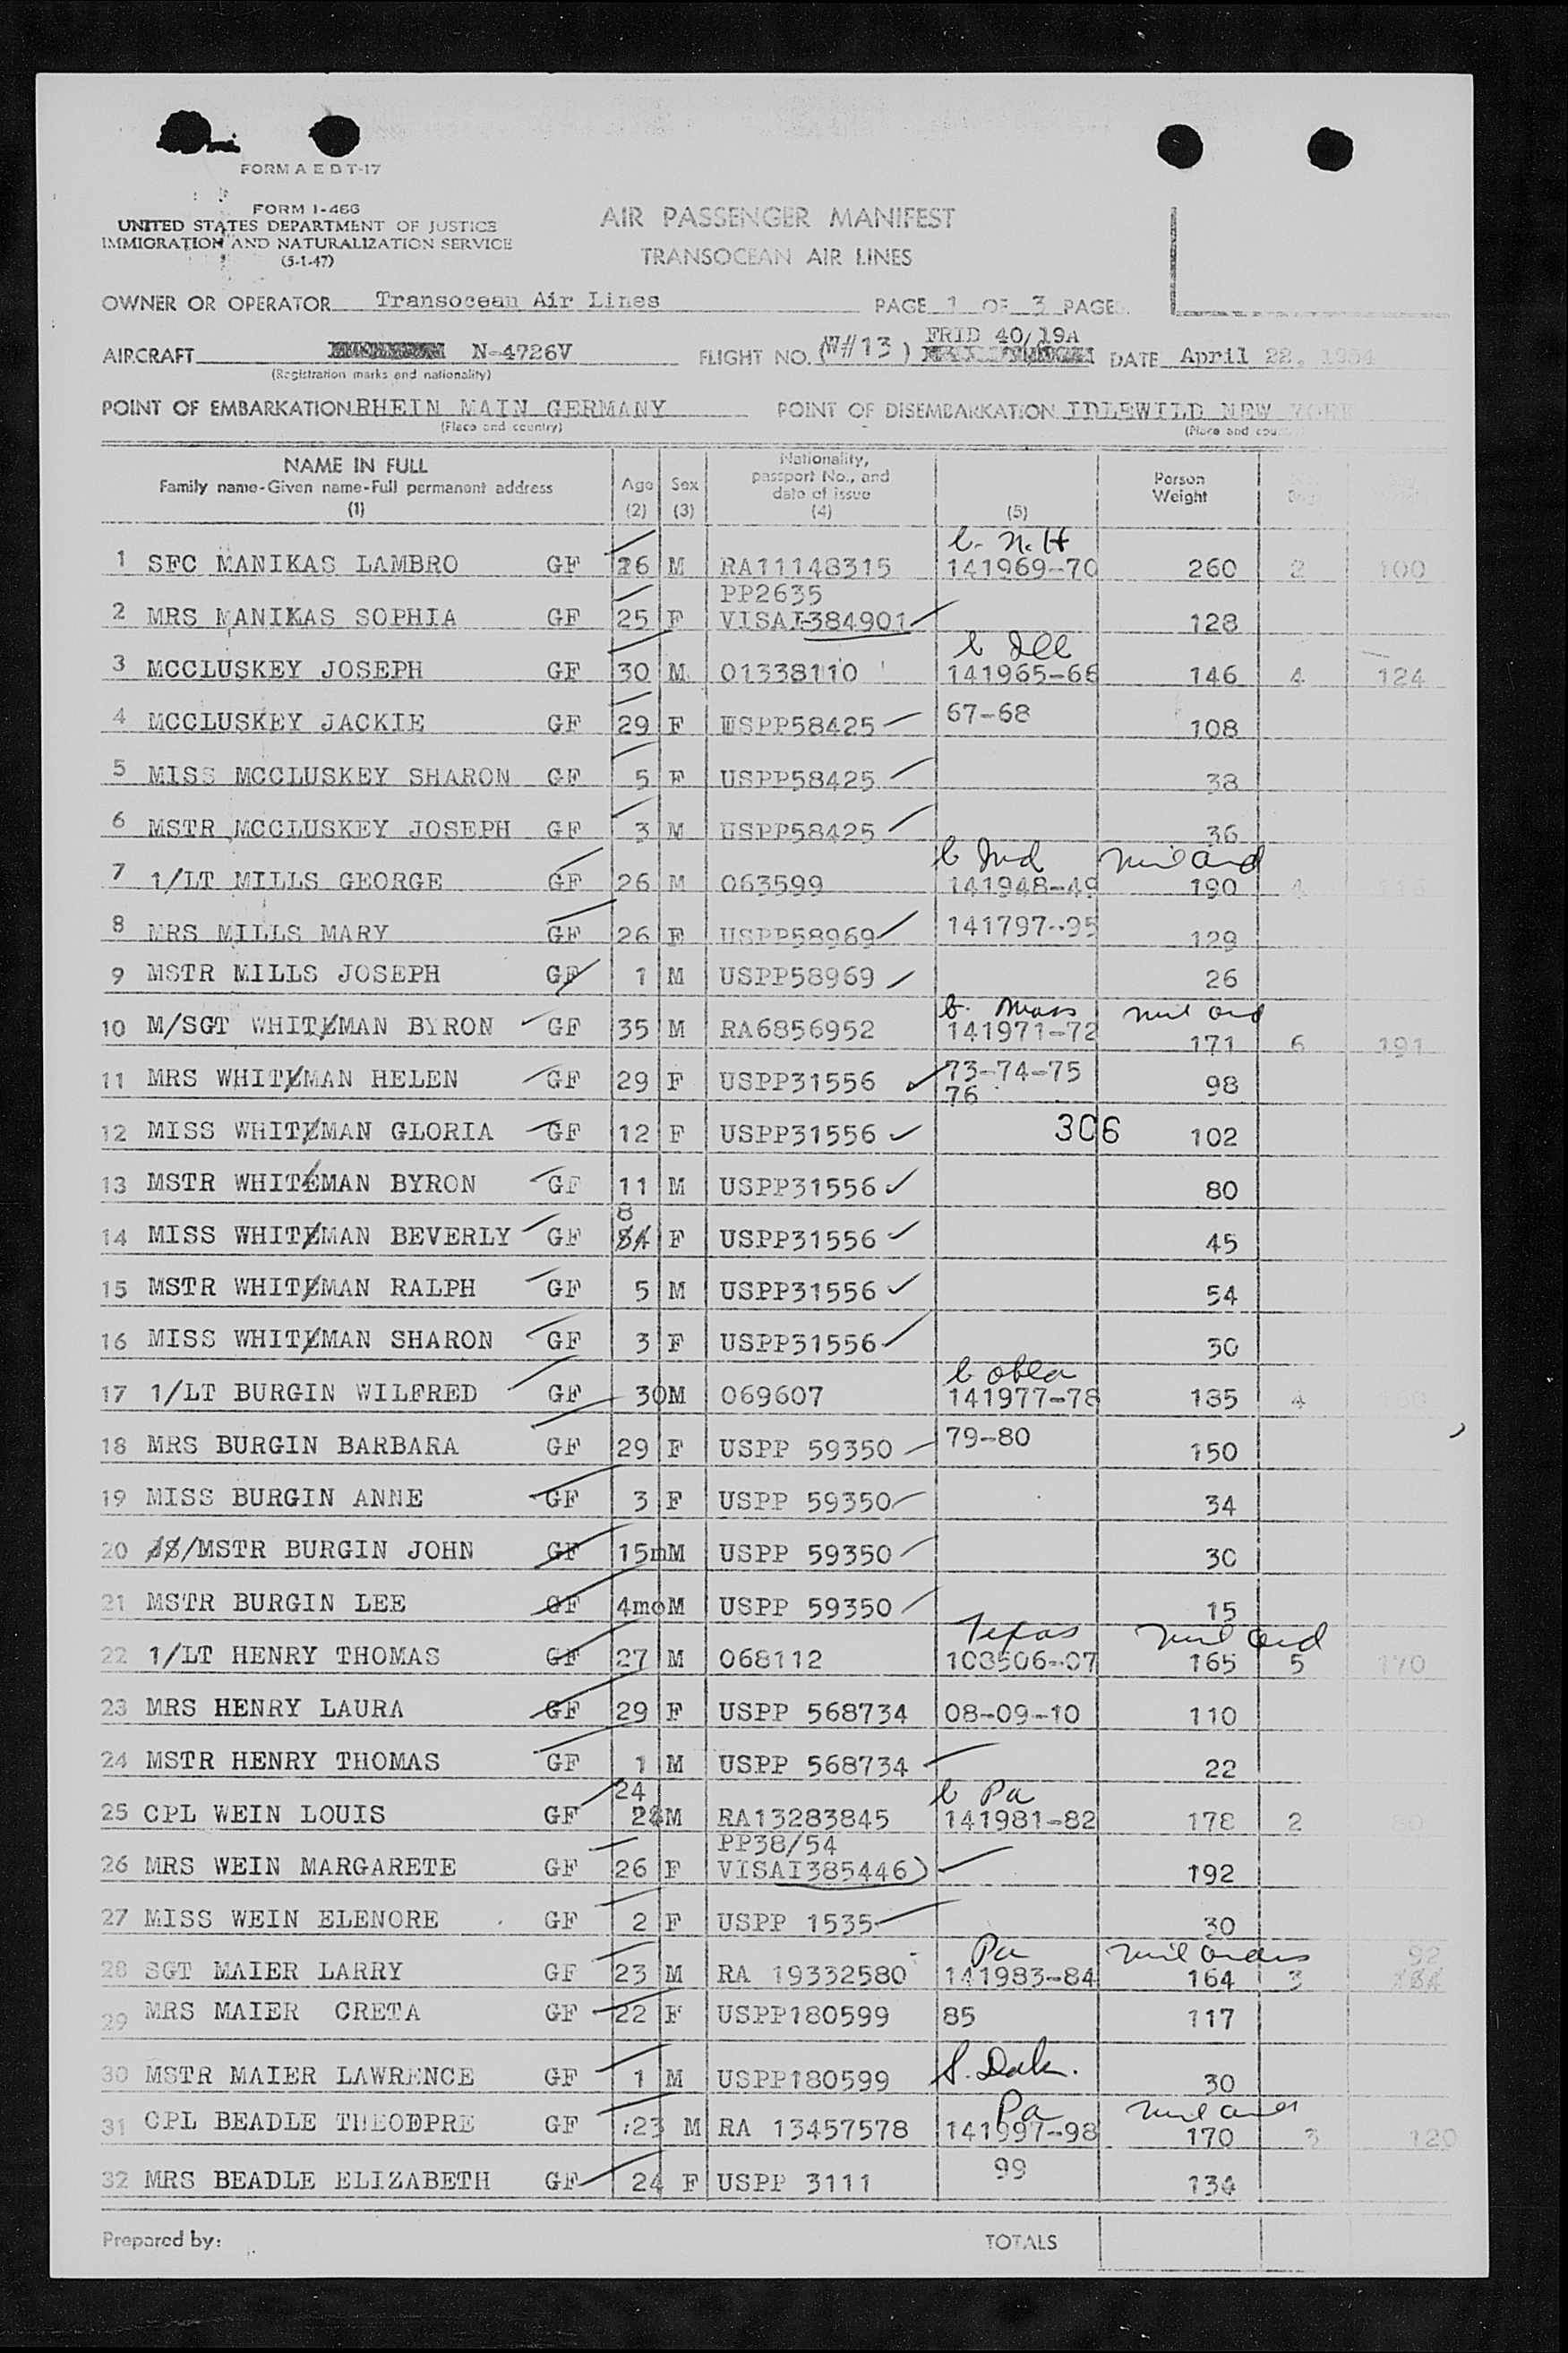 FORM A E B T-17
FORM I-466
UNITED STATES DEPARTMENT OF JUSTICE
IMMIGRATION AND NATURALIZATION SERVICE
(5-1-47)
AIR PASSENGER MANIFEST
TRANSOCEAN AIR LINES
OWNER OR OPERATOR Transocean Air Lines PAGE 1 OF 3 PAGES
AIRCRAFT N-4726V FLIGHT NO. (W#13) FRID 40/19A DATE April 22, 1954
(Registration marks and nationality)
POINT OF EMBARKATION RHEIN MAIN GERMANY POINT OF DISEMBARKATION IDLEWILD NEW YORK
(Place and country) (Place and cou
NAME IN FULL
Family name-Given name-Full permanent address
(1)
Age (2) Sex (3) Nationality, passport No., and date of issue (4) (5) Person Weight
b. N. H
1 SFC MANIKAS LAMBRO GF 26 M RA11148315 141969-70 260 2 100
PP2635
2 MRS MANIKAS SOPHIA GF 25 F VISAI-384901 128
b Ill
3 MCCLUSKEY JOSEPH GF 30 M 01338110 141965-66 146 4 124
4 MCCLUSKEY JACKIE GF 29 F USPP58425 67-68 108
5 MISS MCCLUSKEY SHARON GF 5 F USPP58425 38
6 MSTR MCCLUSKEY JOSEPH GF 3 M USPP58425 36
b Ind mil ord
7 1/LT MILLS GEORGE GF 26 M 063599 141948-49 190 4 116
8 MRS MILLS MARY GF 26 F USPP58969 141797-95 129
9 MSTR MILLS JOSEPH GF 1 M USPP58969 26
b. Mass mil ord
10 M/SGT WHITEMAN BYRON GF 35 M RA6856952 141971-72 171 6 191
11 MRS WHITEMAN HELEN GF 29 F USPP31556 73-74-75 98
76
12 MISS WHITEMAN GLORIA GF 12 F USPP31556 306 102
13 MSTR WHITEMAN BYRON GF 11 M USPP31556 80
8
14 MISS WHITEMAN BEVERLY GF F USPP31556 45
15 MSTR WHITEMAN RALPH GF 5 M USPP31556 54
16 MISS WHITEMAN SHARON GF 3 F USPP31556 30
b Okla
17 1/LT BURGIN WILFRED GF 30 M 069607 141977-78 185 4 160
18 MRS BURGIN BARBARA GF 29 F USPP 59350 79-80 150
19 MISS BURGIN ANNE GF 3 F USPP 59350 34
20 /MSTR BURGIN JOHN GF 15m M USPP 59350 30
21 MSTR BURGIN LEE GF 4mo M USPP 59350 15
Texas mil ord
22 1/LT HENRY THOMAS GF 27 M 068112 103506-07 165 5 170
23 MRS HENRY LAURA GF 29 F USPP 568734 08-09-10 110
24 MSTR HENRY THOMAS GF 1 M USPP 568734 22
24 b Pa
25 CPL WEIN LOUIS GF M RA13283845 141981-82 178 2 80
PP38/54
26 MRS WEIN MARGARETE GF 26 F VISAI385446) 192
27 MISS WEIN ELENORE GF 2 F USPP 1535 30
Pa mil orders 92
28 SGT MAIER LARRY GF 23 M RA 19332580 141983-84 164 3
29 MRS MAIER CRETA GF 22 F USPP180599 85 117
30 MSTR MAIER LAWRENCE GF 1 M USPP180599 S. Dak. 30
Pa mil orders
31 CPL BEADLE THEODPRE GF 23 M RA 13457578 141997-98 170 3 120
32 MRS BEADLE ELIZABETH GF 24 F USPP 3111 99 134
Prepared by: TOTALS